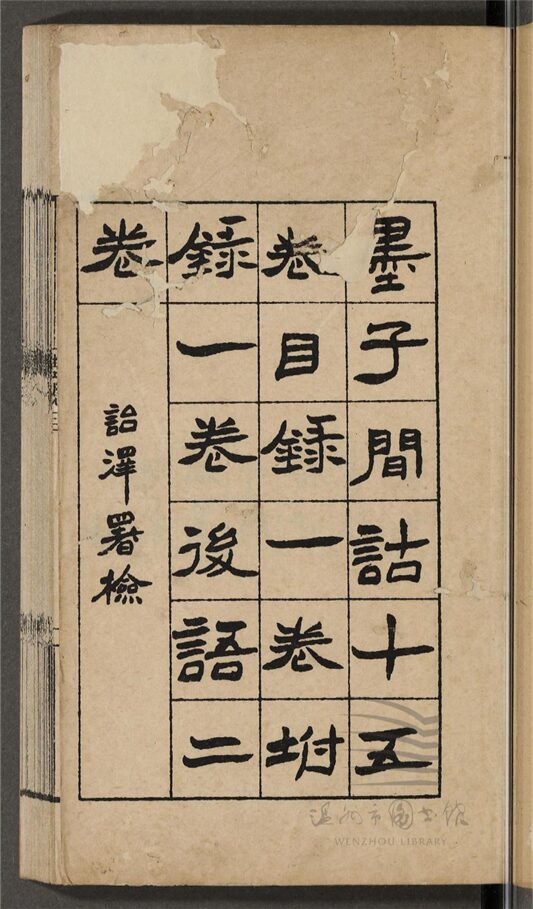 墨子閒詁十五
卷目錄一卷坿
錄一卷後語二
卷
詒澤署檢
温州市图书馆
WENZHOU LIBRARY